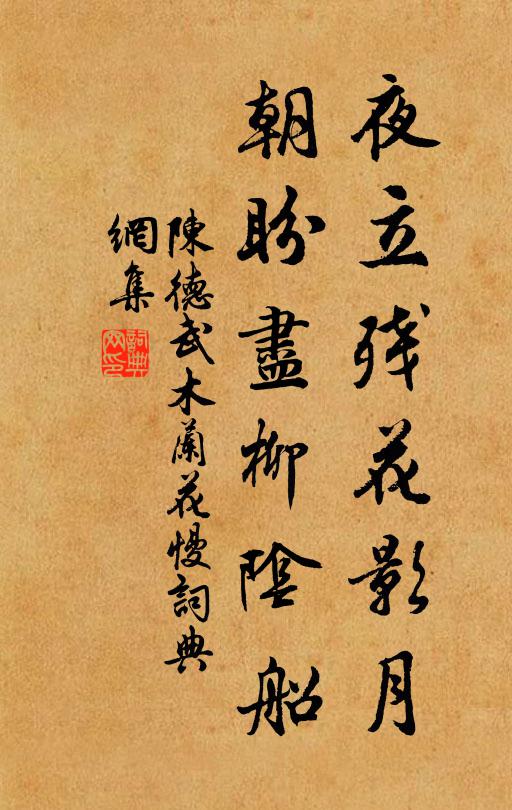 夜立残花影月
朝盼盡柳陰船
陳德武木蘭花慢詞典
網集
詞典
网印